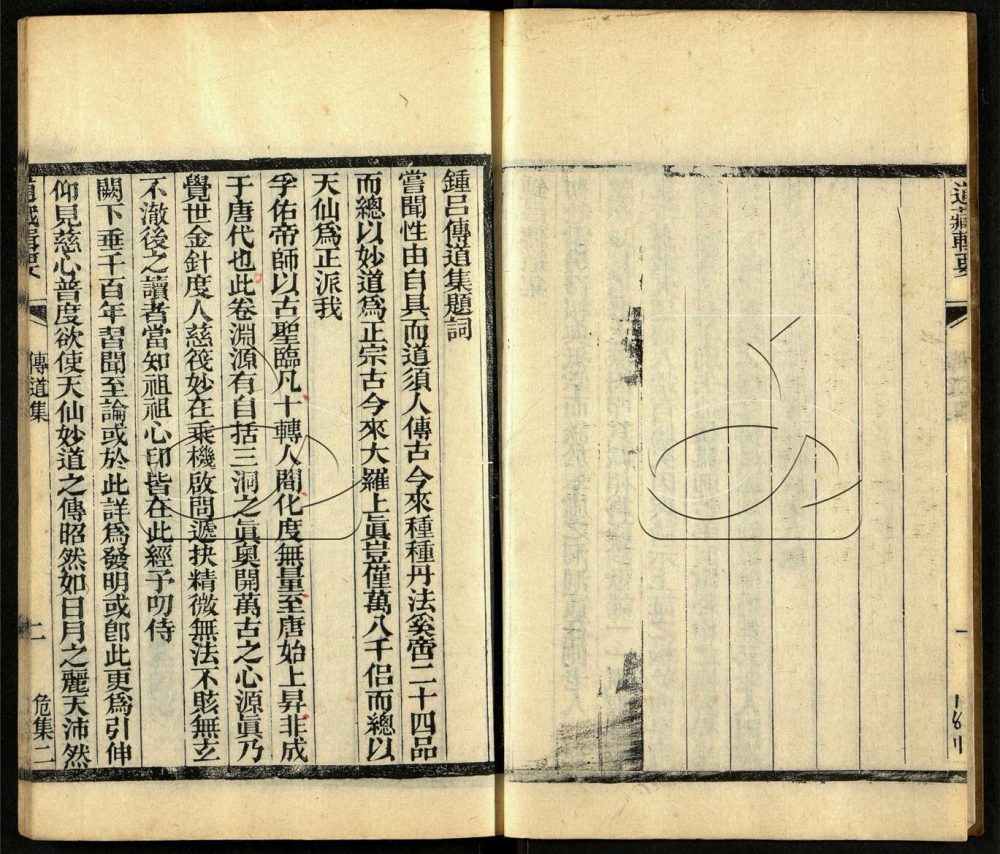 道藏輯要
一
鍾呂傳道集題詞
嘗聞性由自具而道須人傳古今來種種丹法奚啻二十四品
而總以妙道爲正宗古今來大羅上眞豈僅萬八千侶而總以
天仙爲正派我
孚佑帝師以古聖臨凡十轉人間化度無量至唐始上昇非成
于唐代也此卷淵源有自括三洞之眞奧開萬古之心源眞乃
覺世金針度人慈筏妙在乘機啟問遞抉精微無法不賅無玄
不澈後之讀者當知祖祖心印皆在此經予叨侍
闕下垂千百年習聞至論或於此詳爲發明或卽此更爲引伸
仰見慈心普度欲使天仙妙道之傳昭然如日月之麗天沛然
道藏輯要
傳道集
二
危集二